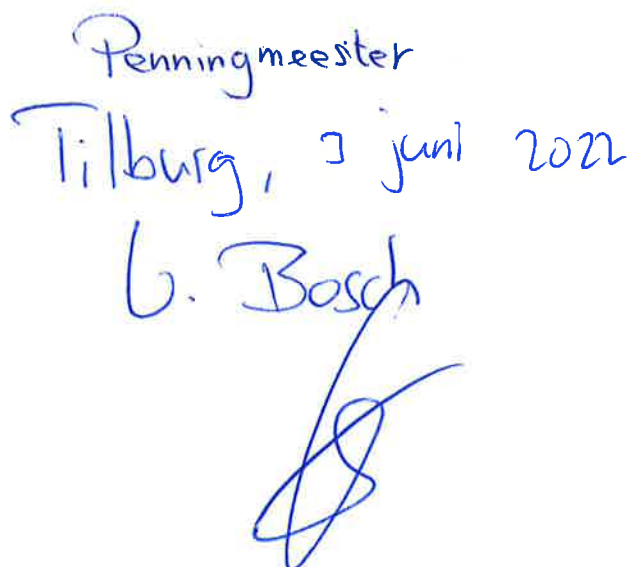 Penningmeester
Tilburg, 3 juni 2022
Bosch